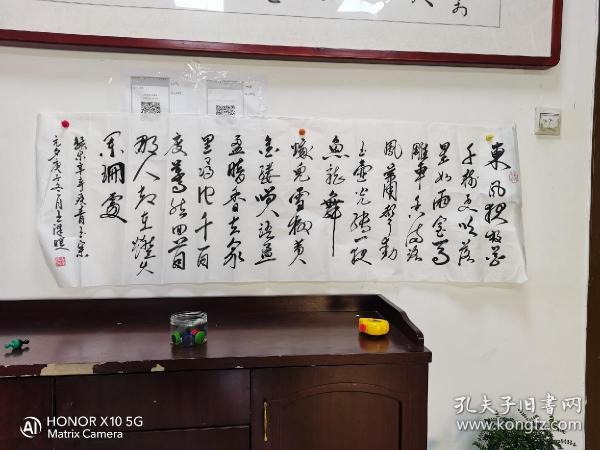 東風夜放花
千樹更吹落
星如雨寶馬
雕車香滿路
鳳簫聲動
玉壺光轉一夜
魚龍舞
蛾兒雪柳黃
金縷笑語盈
盈暗香去衆
里尋他千百
度驀然回首
那人却在燈火
闌珊處
辛棄疾青玉案
元夕庚子冬月王
HONOR X10 5G
Matrix Camera
孔夫子旧书网
www.kongfz.com